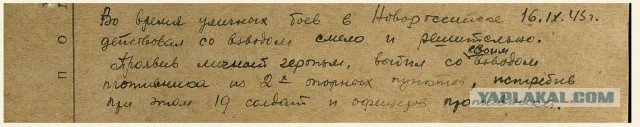 Во время уличных боев в Новороссийске 16.IX.43г.
действовал со взводом смело и решительно.
Проявив личный героизм, выбил со своим взводом
противника из 2х опорных пунктов, истребив
при этом 19 солдат и офицеров противника.
YAPLAKAL.COM
п о